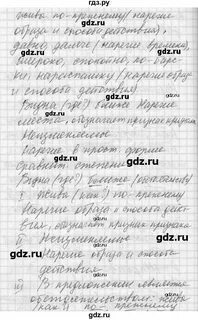 гдз.ру
живо по-прежнему (наречие
образа и способа действия),
давно, далее (наречие времени),
широко, спокойно, по-бар-
ски, нараспашку (наречие образ
и способа действия).
Видна (где?) ближе. Наречие
места, обозначает признак признака
Неизменяемое
Наречие в прост. форме
сравнит. степени
Видна (где?) ближе (обстоятельство)
I Жива (как?) по-прежнему
Наречие образа и способа дейст-
вия, обозначает признак признака
II Неизменяемое
Наречие образа и способа
действия
III В предложении является
обстоятельством: жива
(как?) по-прежнему
гдз.ру